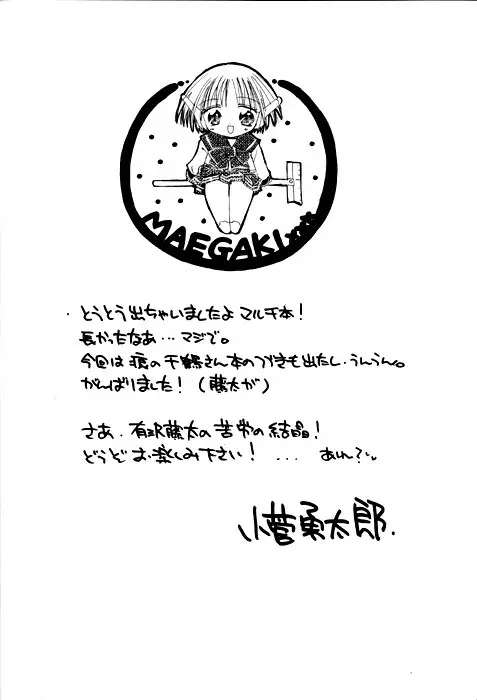 MAEGAKI
・とうとう出ちゃいましたよ マルチ本！
長かったなあ…マジで。
今回は痕の千鶴さん本のつづきも出たし、うんうん。
がんばりました！（藤太が）
さあ、有沢藤太の苦労の結晶！
どうぞお楽しみ下さい！...あれ？
小菅勇太郎.